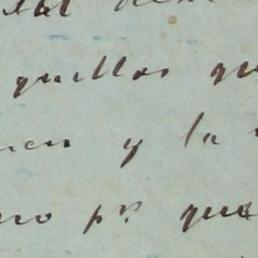 quellos qu
men y la
no pr. que